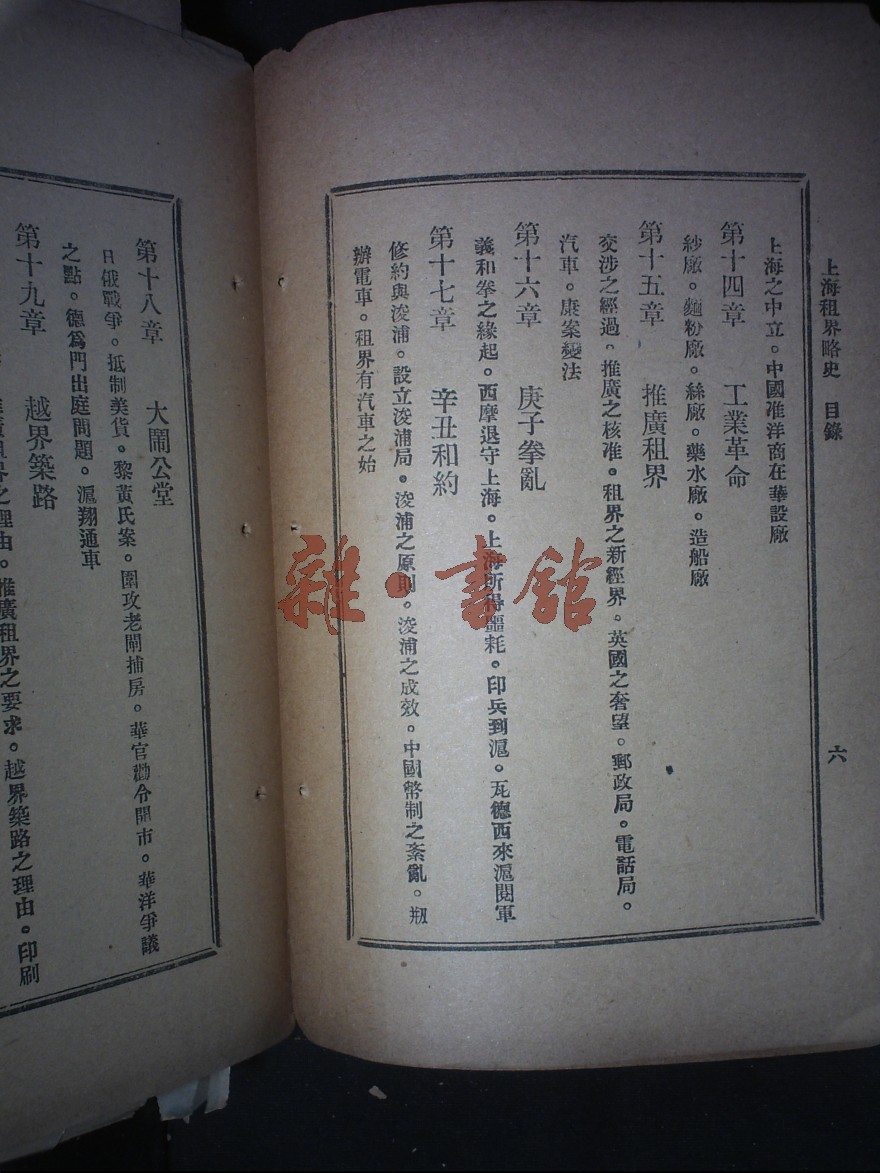 上海租界略史　目錄　六
上海之中立。中國准洋商在華設廠
第十四章　工業革命
紗廠。麵粉廠。絲廠。藥水廠。造船廠
第十五章　推廣租界
交涉之經過。推廣之核准。租界之新經界。英國之奢望。郵政局。電話局。
汽車。康案變法
第十六章　庚子拳亂
義和拳之緣起。西摩退守上海。上海所得噩耗。印兵到滬。瓦德西來滬閱軍
第十七章　辛丑和約
修約與浚浦。設立浚浦局。浚浦之原則。浚浦之成效。中國幣制之紊亂。刱
辦電車。租界有汽車之始
第十八章　大鬧公堂
日俄戰爭。抵制美貨。黎黃氏案。圍攻老閘捕房。華官勸令開市。華洋爭議
之點。德爲門出庭問題。滬翔通車
第十九章　越界築路
之理由。推廣租界之要求。越界築路之理由。印刷
雜·書館